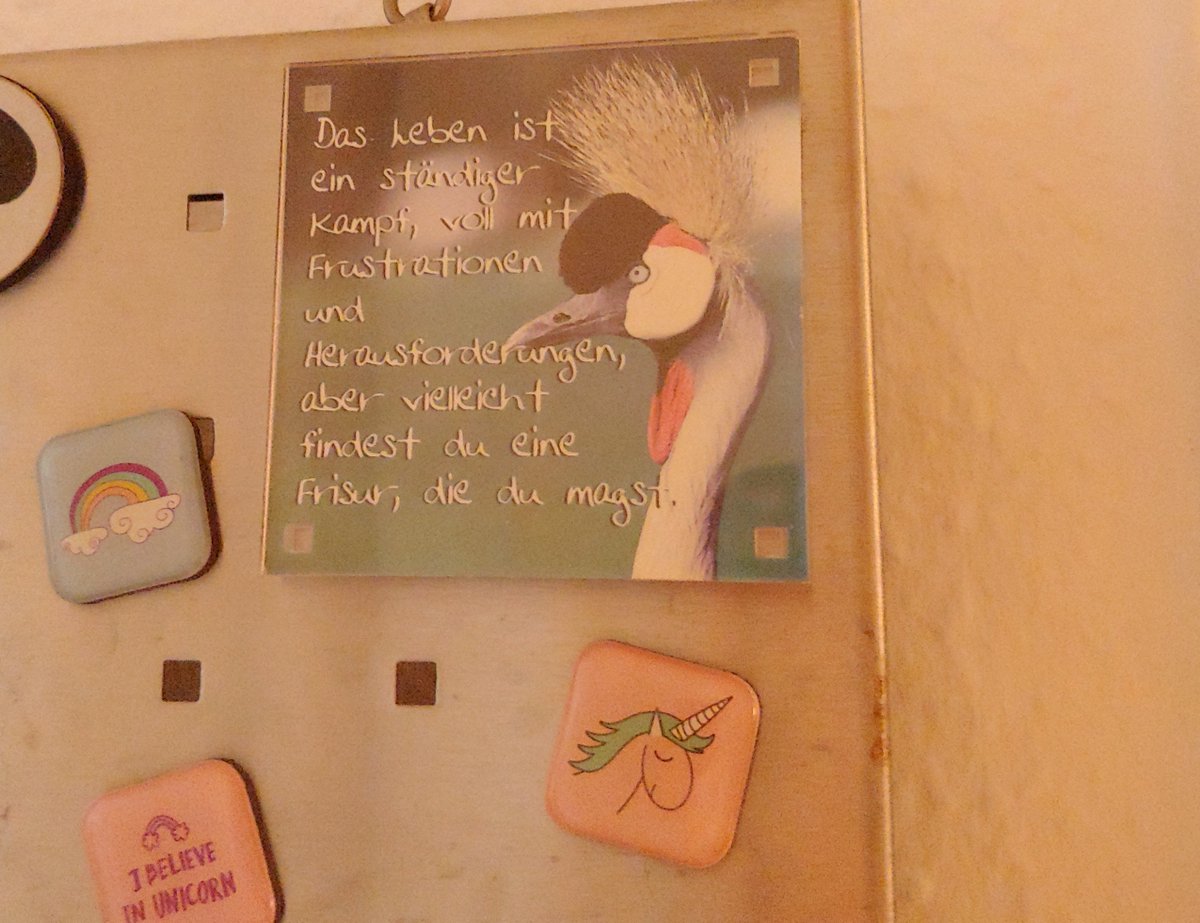 Das Leben ist
ein ständiger
Kampf, voll mit
Frustrationen
und
Herausforderungen,
aber vielleicht
findest du eine
Frisur, die du magst.
I BELIEVE
IN UNICORN